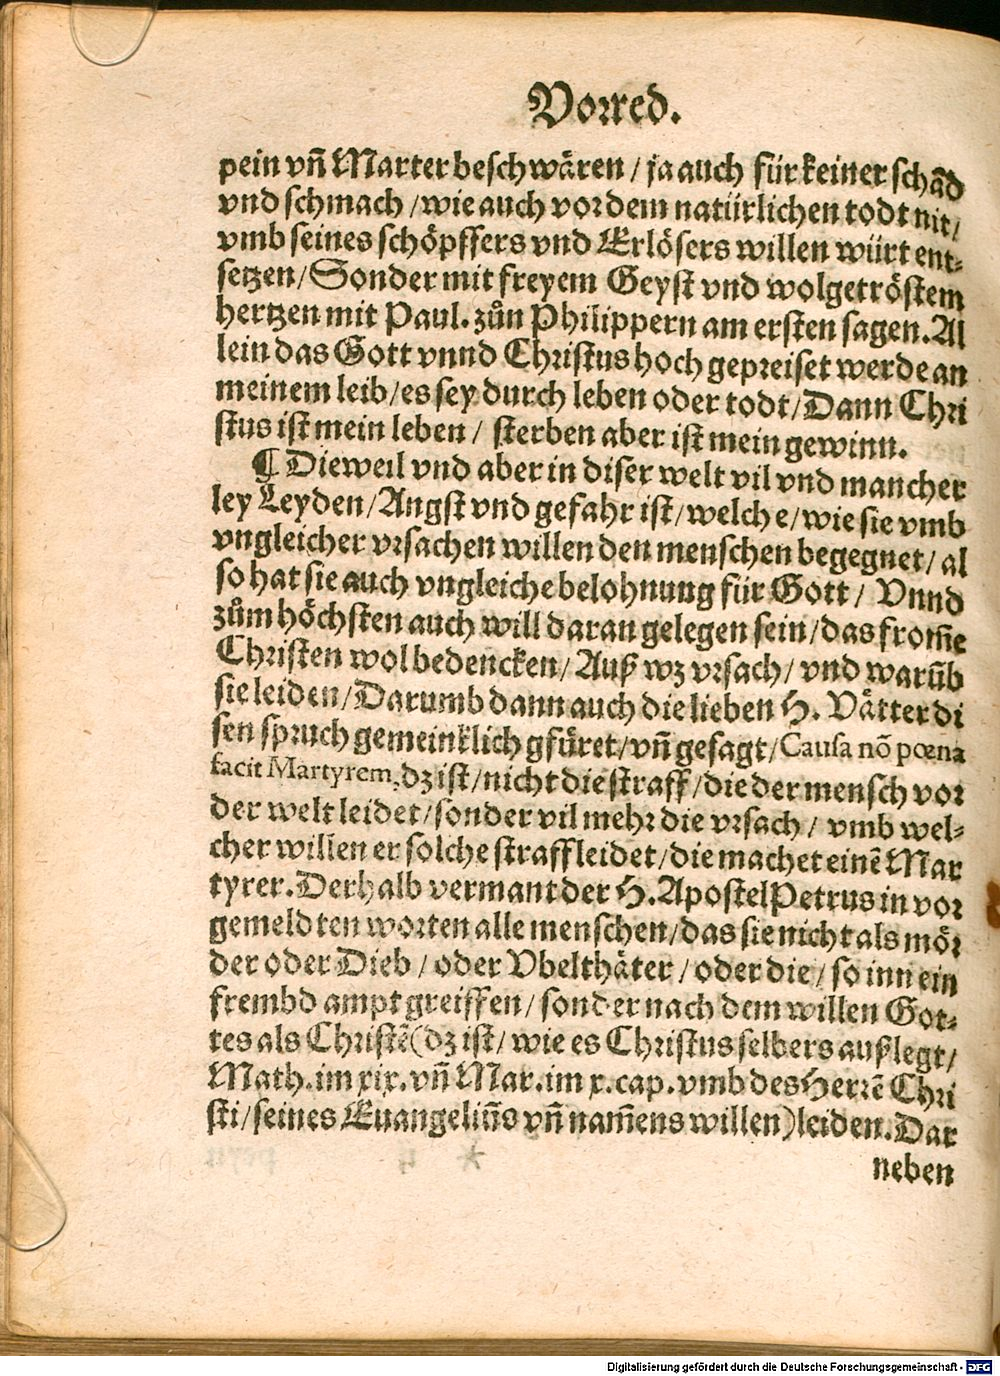 Vorred.
pein vñ Marter beschwären / ja auch für keiner schãd
vnd schmach / wie auch vor dem natürlichen todt nit /
vmb seines schöpffers vnd Erlösers willen würt ent-
setzen / Sonder mit freyem Geyst vnd wolgetröstem
hertzen mit Paul. zůn Philippern am ersten sagen. Al
lein das Gott vnnd Christus hoch gepreiset werde an
meinem leib / es sey durch leben oder todt / Dann Chri
stus ist mein leben / sterben aber ist mein gewinn.
¶ Dieweil vnd aber in diser welt vil vnd mancher
ley Leyden / Angst vnd gefahr ist / welche / wie sie vmb
vngleicher vrsachen willen den menschen begegnet / al
so hat sie auch vngleiche belohnung für Gott / Vnnd
zům höchsten auch will daran gelegen sein / das from̃e
Christen wol bedencken / Auß wz vrsach / vnd warũb
sie leiden / Darumb dann auch die lieben H. Vätter di
sen spruch gemeinklich gfüret / vñ gesagt / Causa nõ pœna
facit Martyrem, dz ist / nicht die straff / die der mensch vor
der welt leidet / sonder vil mehr die vrsach / vmb wel-
cher willen er solche straff leidet / die machet einẽ Mar
tyrer. Derhalb vermant der H. Apostel Petrus in vor
gemeldten worten alle menschen / das sie nicht als mör
der oder Dieb / oder Vbelthäter / oder die / so inn ein
frembd ampt greiffen / sonder nach dem willen Got-
tes als Christẽ (dz ist / wie es Christus selbers außlegt /
Math. im xix. vñ Mar. im x. cap. vmb des Herrẽ Chri
sti / seines Euangeliũs vñ nam̃ens willen) leiden. Dar
neben
Digitalisierung gefördert durch die Deutsche Forschungsgemeinschaft - DFG